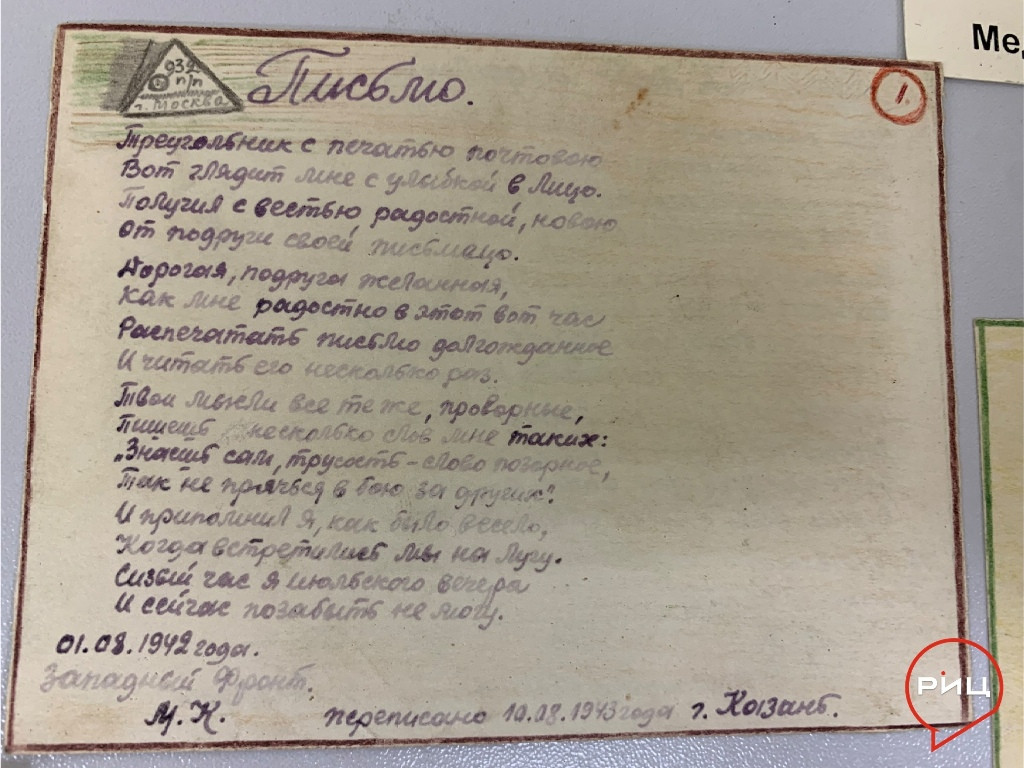 939
п/п
г. Москва
Письмо.
1.
Ме
Треугольник с печатью почтовою
Вот глядит мне с улыбкой в лицо.
Получил с вестью радостной, новою
От подруги своей письмацо.
Дорогая, подруга желанная,
Как мне радостно в этот вот час
Распечатать письмо долгожданное
И читать его несколько раз.
Твои мысли все те же, проворные,
Пишешь несколько слов мне таких:
„Знаешь сам, трусость - слово позорное,
Так не прячься в бою за других".
И припомнил я, как было весело,
Когда встретились мы на лугу.
Сизый час я июльского вечера
И сейчас позабыть не могу.
01.08.1942 года.
Западный Фронт.
М.К. переписано 10.08.1943 года г. Казань.
РИЦ